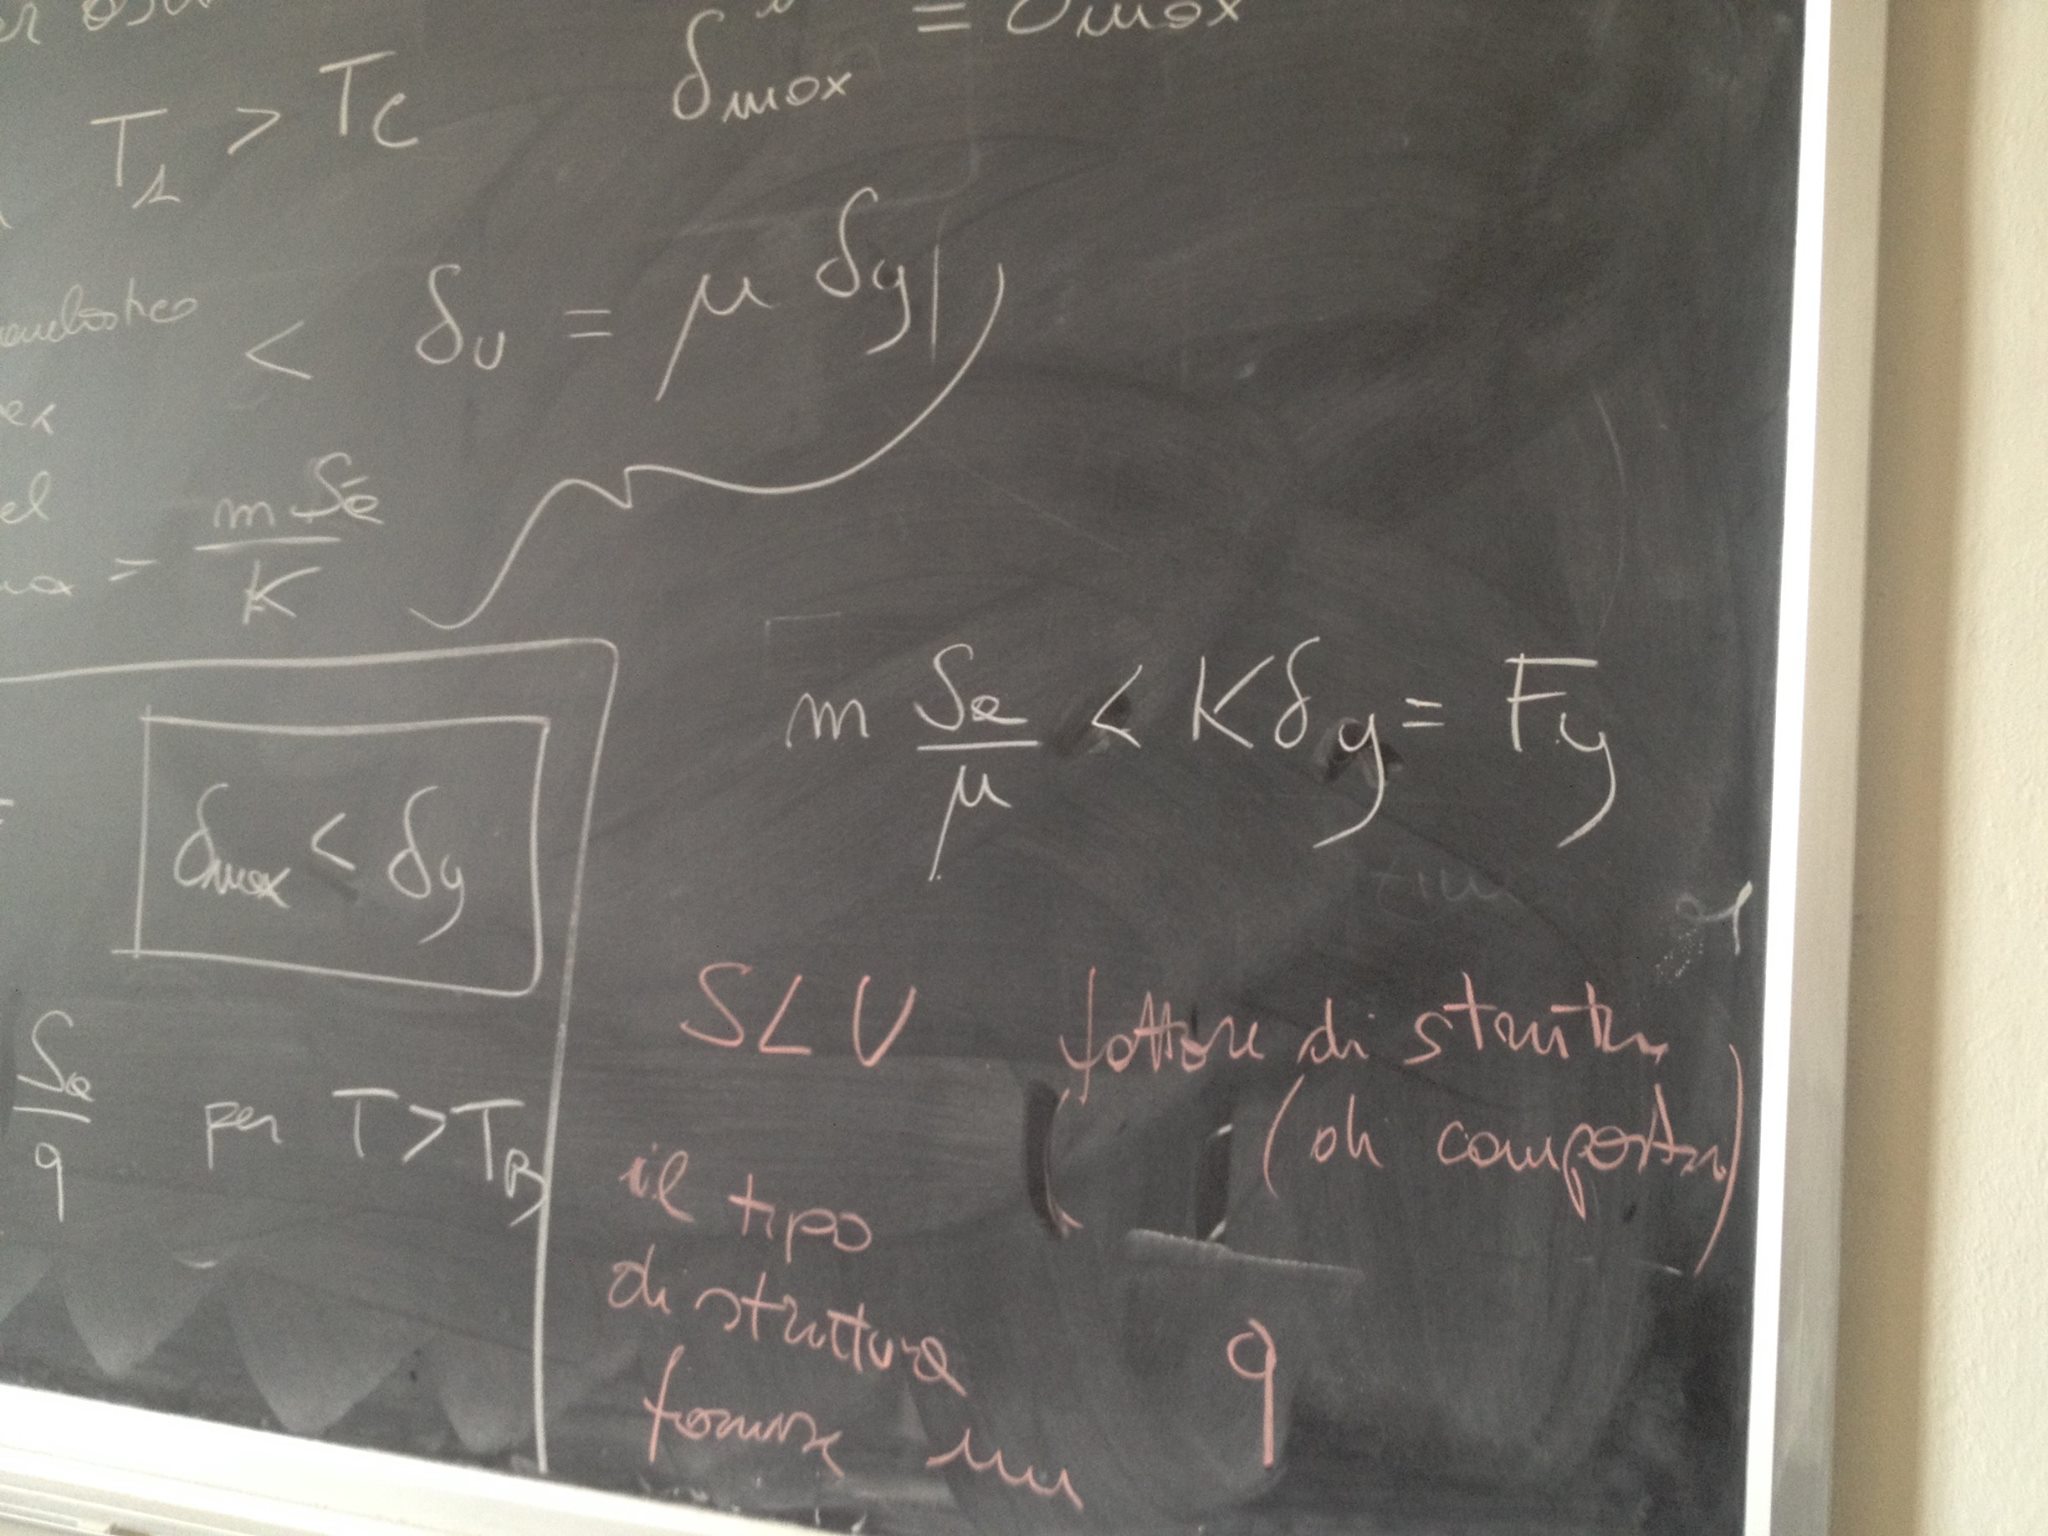 δmax = δmax
T1 > TC
< δu = μ δy
m Se / K
m Se / μ < K δy = Fy
δmax < δy
SLV fattore di struttura
(di comporta)
Se / q per T > TB
il tipo
di struttura
fornisce un q